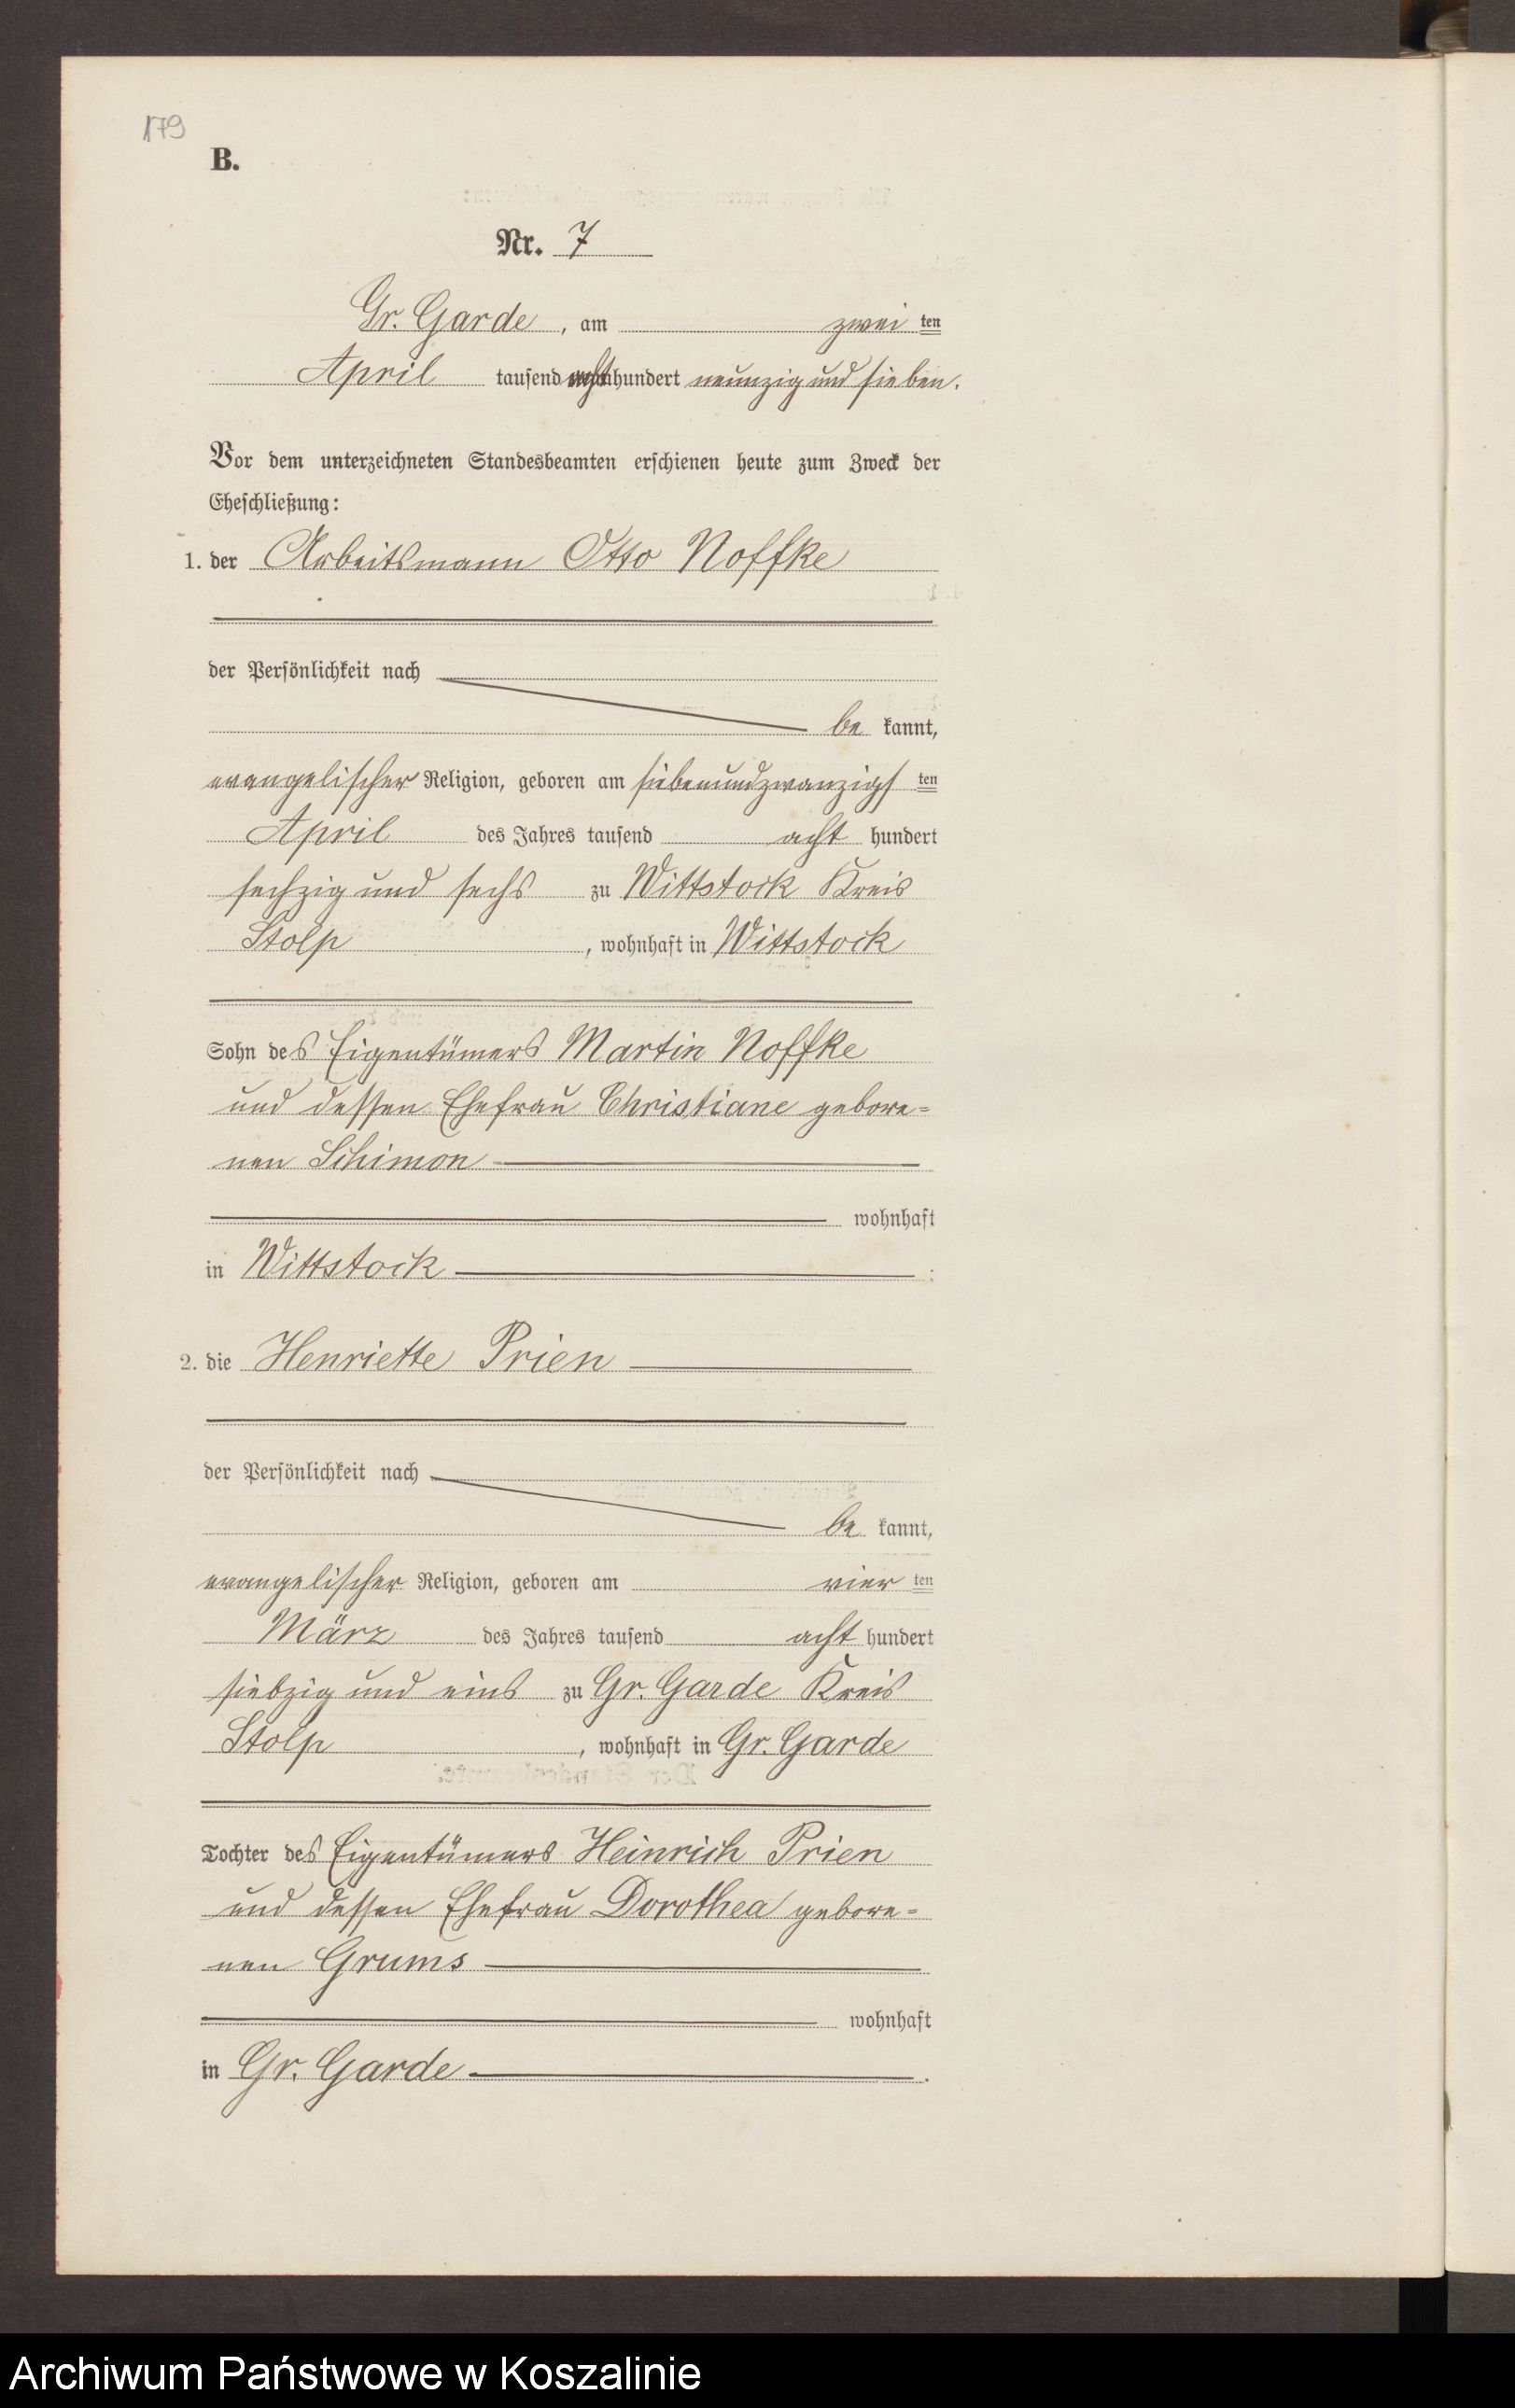 179
B.
Nr. 7
Gr. Garde, am zwei ten
April tausend acht hundert neunzig und sieben.
Vor dem unterzeichneten Standesbeamten erschienen heute zum Zweck der
Eheschließung:
1. der Arbeitsmann Otto Noffke
der Persönlichkeit nach
be kannt,
evangelischer Religion, geboren am siebenundzwanzigs ten
April des Jahres tausend acht hundert
sechzig und sechs zu Wittstock Kreis
Stolp, wohnhaft in Wittstock
Sohn des Eigentümers Martin Noffke
und dessen Ehefrau Christiane gebore=
nen Schimon
wohnhaft
in Wittstock :
2. die Henriette Prien
der Persönlichkeit nach
be kannt,
evangelischer Religion, geboren am vier ten
März des Jahres tausend acht hundert
siebzig und eins zu Gr. Garde Kreis
Stolp, wohnhaft in Gr. Garde
Tochter des Eigentümers Heinrich Prien
und dessen Ehefrau Dorothea gebore=
nen Grums
wohnhaft
in Gr. Garde.
Archiwum Państwowe w Koszalinie